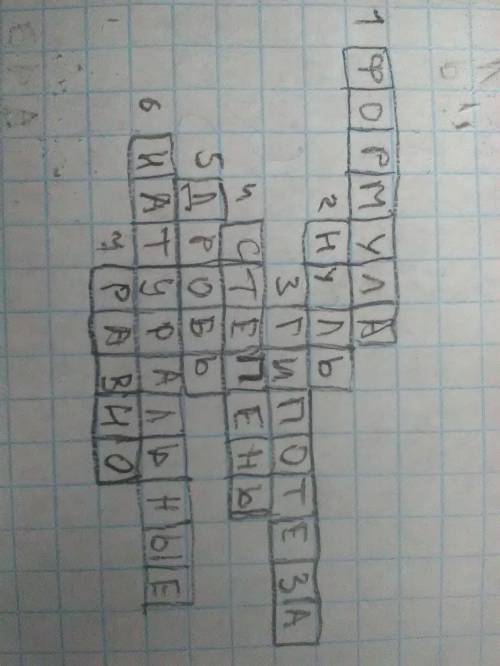 1 ФОРМУЛА
2 НУЛЬ
3 ГИПОТЕЗА
4 СТЕПЕНЬ
5 ДРОБЬ
6 НАТУРАЛЬНЫЕ
7 РАВНО